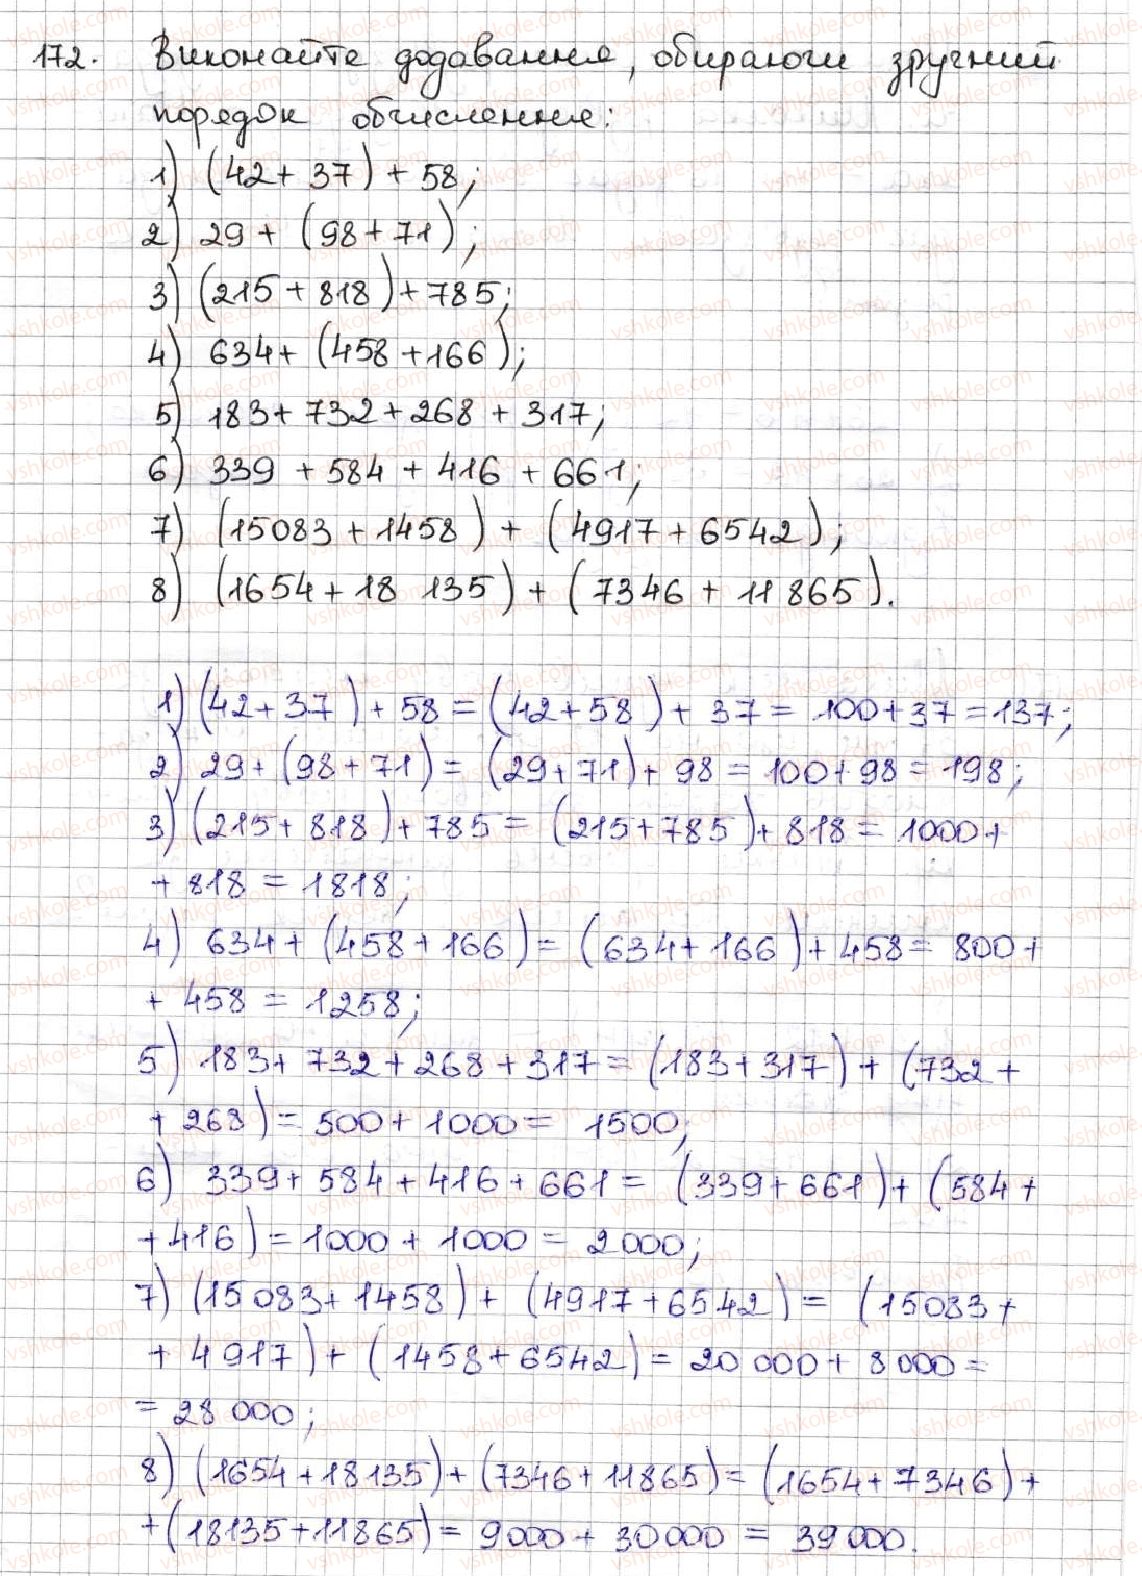 172. Виконайте додавання, обираючи зручний
порядок обчислення:
1) (42 + 37) + 58;
2) 29 + (98 + 71);
3) (215 + 818) + 785;
4) 634 + (458 + 166);
5) 183 + 732 + 268 + 317;
6) 339 + 584 + 416 + 661;
7) (15083 + 1458) + (4917 + 6542);
8) (1654 + 18 135) + (7346 + 11 865).
1) (42 + 37) + 58 = (42 + 58) + 37 = 100 + 37 = 137;
2) 29 + (98 + 71) = (29 + 71) + 98 = 100 + 98 = 198;
3) (215 + 818) + 785 = (215 + 785) + 818 = 1000 +
+ 818 = 1818;
4) 634 + (458 + 166) = (634 + 166) + 458 = 800 +
+ 458 = 1258;
5) 183 + 732 + 268 + 317 = (183 + 317) + (732 +
+ 268) = 500 + 1000 = 1500;
6) 339 + 584 + 416 + 661 = (339 + 661) + (584 +
+ 416) = 1000 + 1000 = 2000;
7) (15083 + 1458) + (4917 + 6542) = (15083 +
+ 4917) + (1458 + 6542) = 20 000 + 8 000 =
= 28 000;
8) (1654 + 18135) + (7346 + 11865) = (1654 + 7346) +
+ (18135 + 11865) = 9000 + 30000 = 39 000.